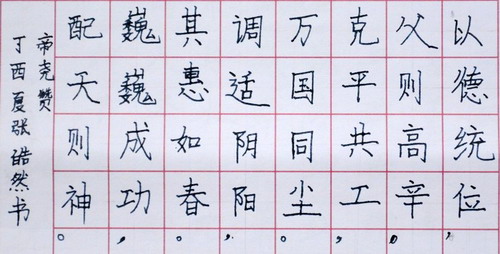 以德统位，
父则高辛。
克平共工，
万国同尘。
调适阴阳，
其惠如春。
巍巍成功，
配天则神。
帝尧赞
丁酉夏张皓然书